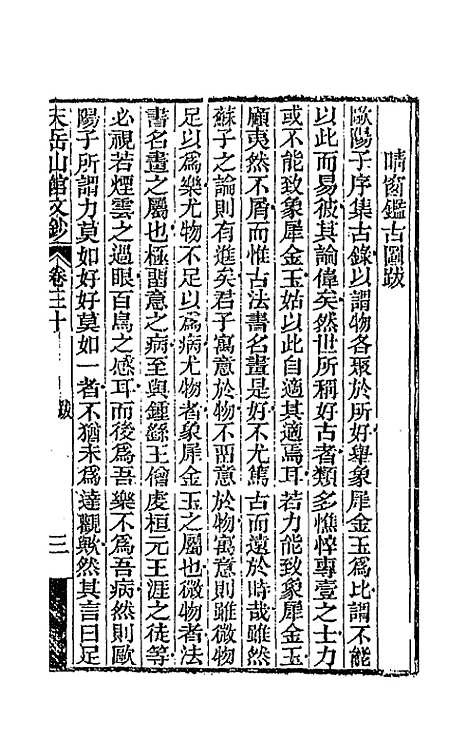 晴窗鑑古圖跋
歐陽子序集古錄以謂物各聚於所好舉象犀金玉爲比謂不能
以此而易彼其論偉矣然世所稱好古者類多憔悴專壹之士力
或不能致象犀金玉姑以此自適其適焉耳若力能致象犀金玉
顧夷然不屑而惟古法書名畫是好不尤篤古而遠於時哉雖然
蘇子之論則有進矣君子寓意於物不畱意於物寓意則雖微物
足以爲樂尤物不足以爲病尤物者象犀金玉之屬也微物者法
書名畫之屬也極畱意之病至與鍾繇王僧虔桓元王涯之徒等
必視若煙雲之過眼百鳥之感耳而後爲吾樂不爲吾病然則歐
陽子所謂力莫如好好莫如一者不猶未爲達觀歟然其言曰足
天岳山館文鈔 卷三十 跋 三